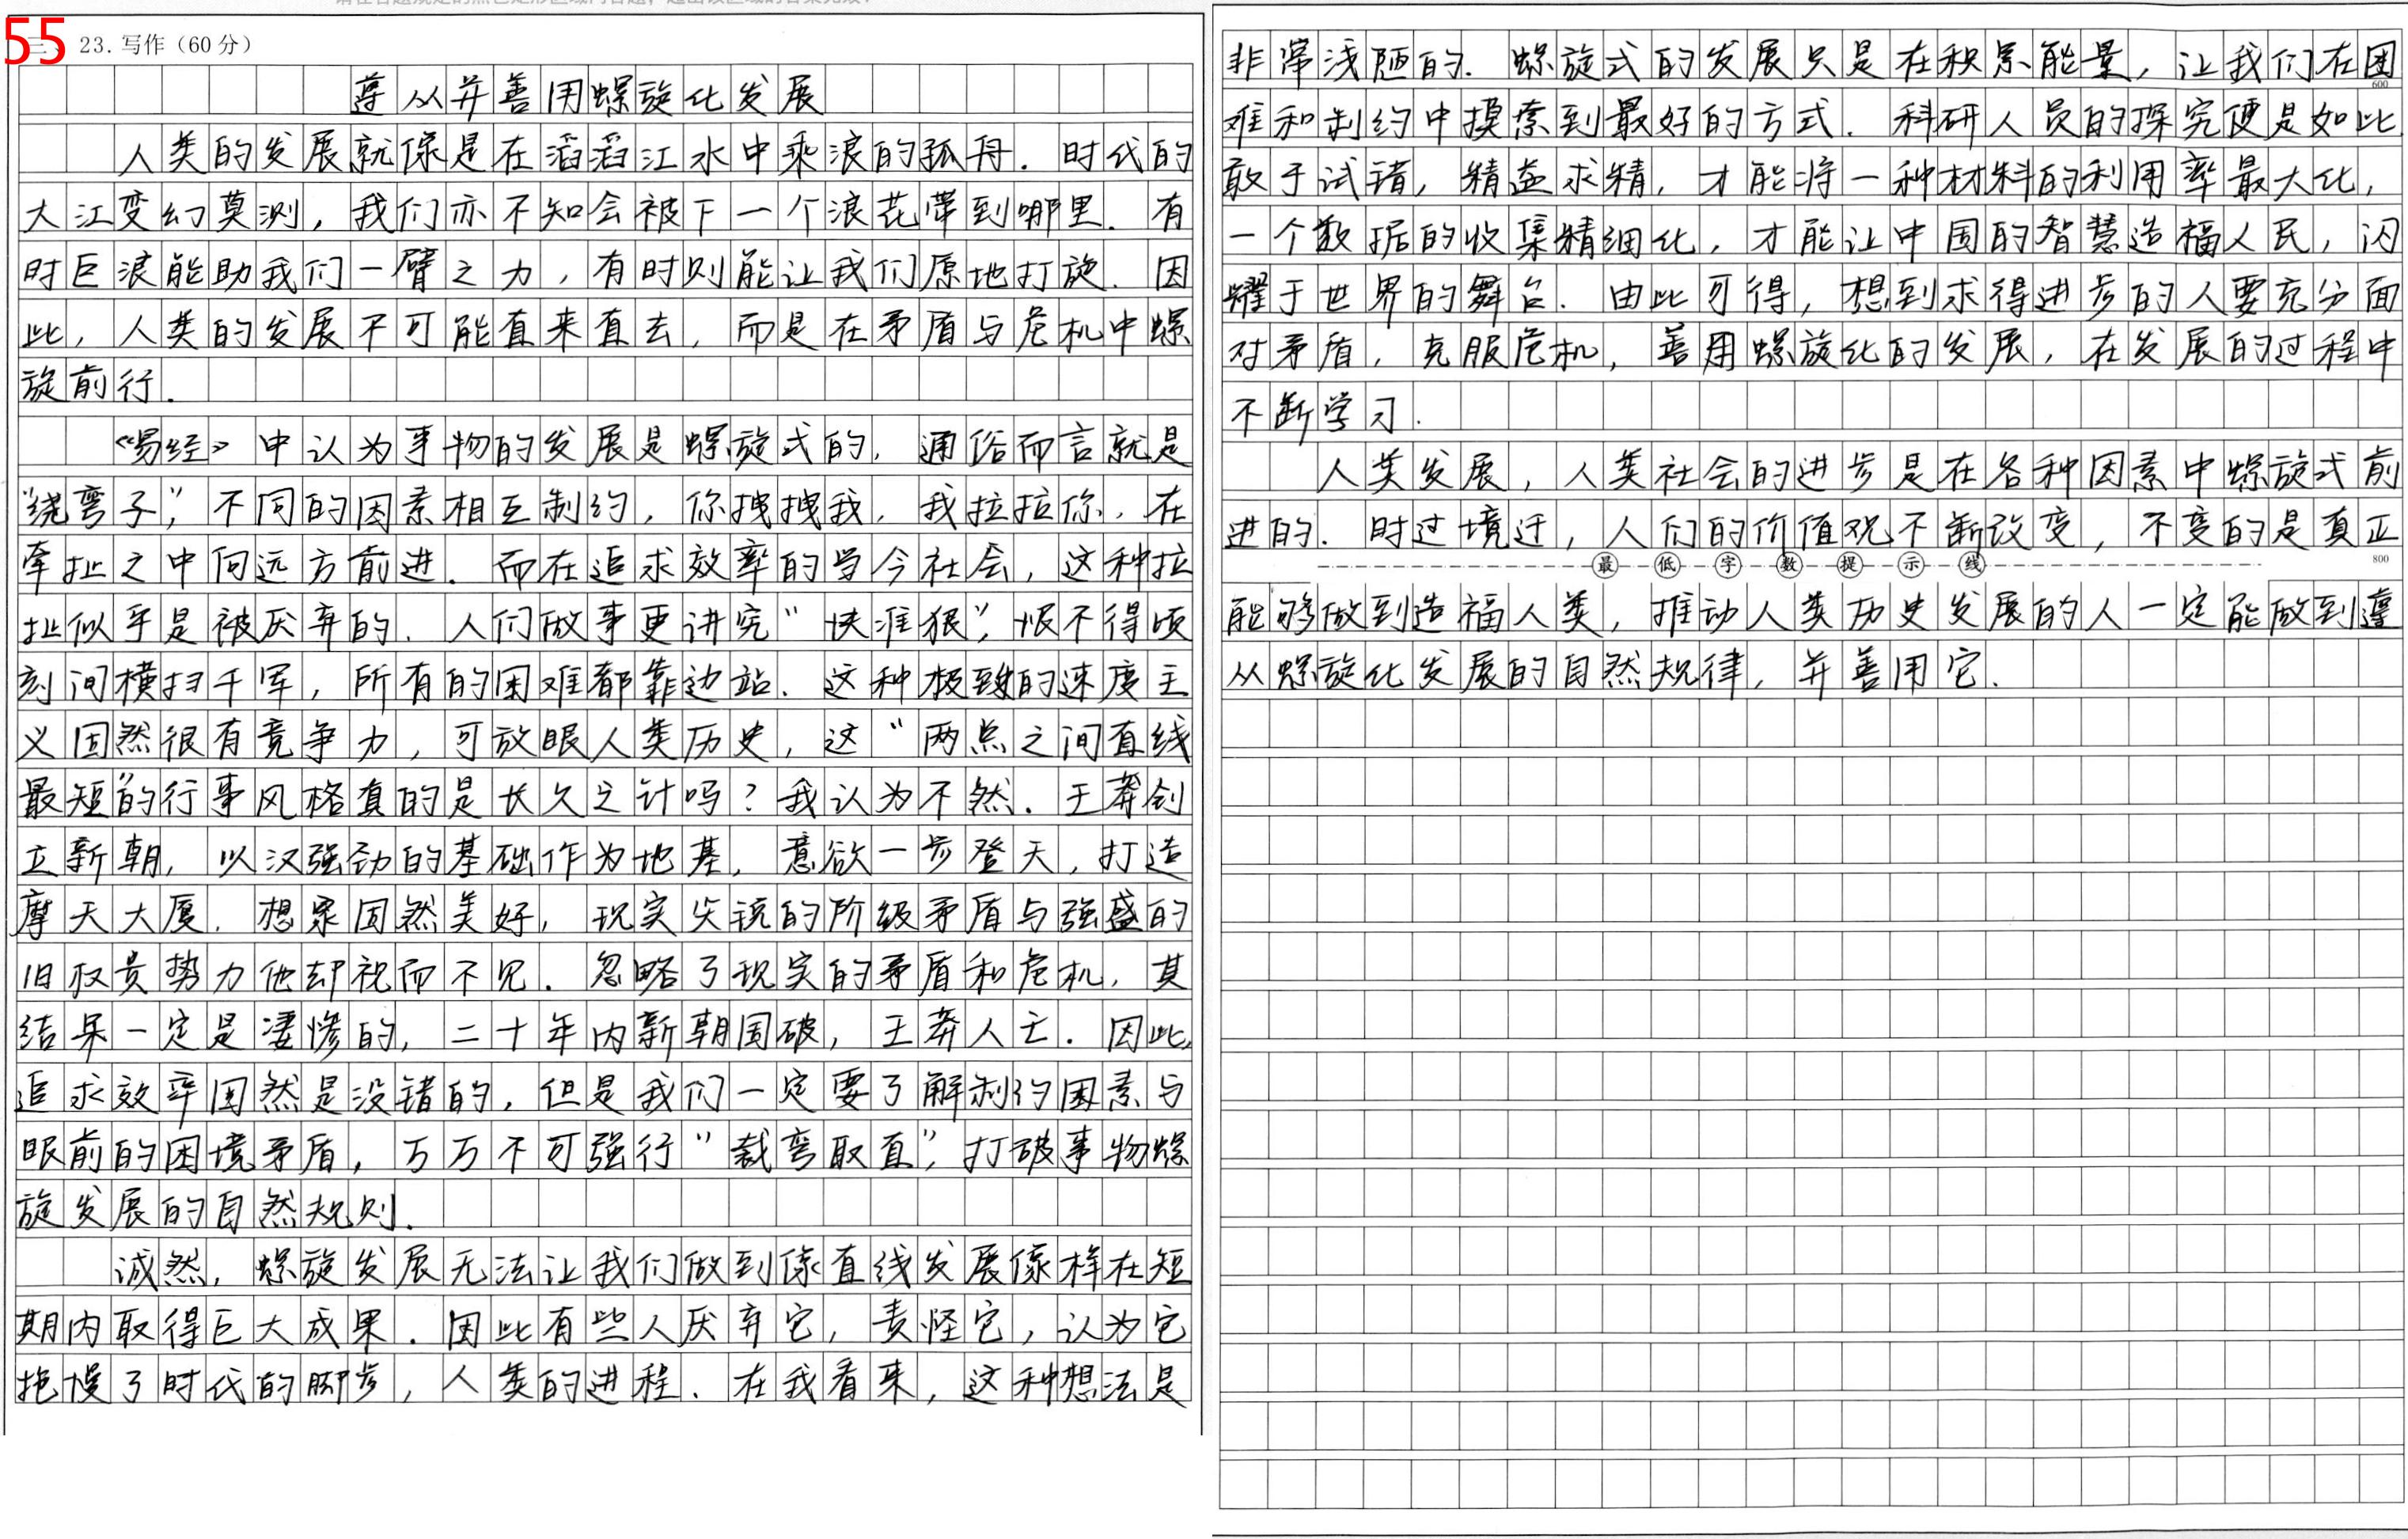 55
三、23.写作（60分）
遵从并善用螺旋化发展
人类的发展就像是在滔滔江水中乘浪的孤舟.时代的
大江变幻莫测，我们亦不知会被下一个浪花带到哪里.有
时巨浪能助我们一臂之力，有时则能让我们原地打旋.因
此，人类的发展不可能直来直去，而是在矛盾与危机中螺
旋前行.
《易经》中认为事物的发展是螺旋式的，通俗而言就是
“绕弯子”，不同的因素相互制约，你拽拽我，我拉拉你，在
牵扯之中向远方前进.而在追求效率的当今社会，这种拉
扯似乎是被厌弃的.人们做事更讲究“快准狠”，恨不得顷
刻间横扫千军，所有的困难都靠边站.这种极致的速度主
义固然很有竞争力，可放眼人类历史，这“两点之间直线
最短”的行事风格真的是长久之计吗？我认为不然.王莽创
立新朝，以汉强劲的基础作为地基，意欲一步登天，打造
摩天大厦.想象固然美好，现实失调的阶级矛盾与强盛的
旧权贵势力他却视而不见.忽略了现实的矛盾和危机，其
结果一定是凄惨的，二十年内新朝国破，王莽人亡.因此，
追求效率固然是没错的，但是我们一定要了解制约因素与
眼前的困境矛盾，万万不可强行“裁弯取直”，打破事物螺
旋发展的自然规则.
诚然，螺旋发展无法让我们做到像直线发展像样在短
期内取得巨大成果.因此有些人厌弃它，责怪它，认为它
拖慢了时代的脚步，人类的进程.在我看来，这种想法是
非常浅陋的.螺旋式的发展只是在积累能量，让我们在困
600
难和制约中摸索到最好的方式.科研人员的探究便是如此
敢于试错，精益求精，才能将一种材料的利用率最大化，
一个数据的收集精细化，才能让中国的智慧造福人民，闪
耀于世界的舞台.由此可得，想到求得进步的人要充分面
对矛盾，克服危机，善用螺旋化的发展，在发展的过程中
不断学习.
人类发展，人类社会的进步是在各种因素中螺旋式前
进的.时过境迁，人们的价值观不断改变，不变的是真正
最低字数提示线
800
能够做到造福人类，推动人类历史发展的人一定能做到遵
从螺旋化发展的自然规律，并善用它.